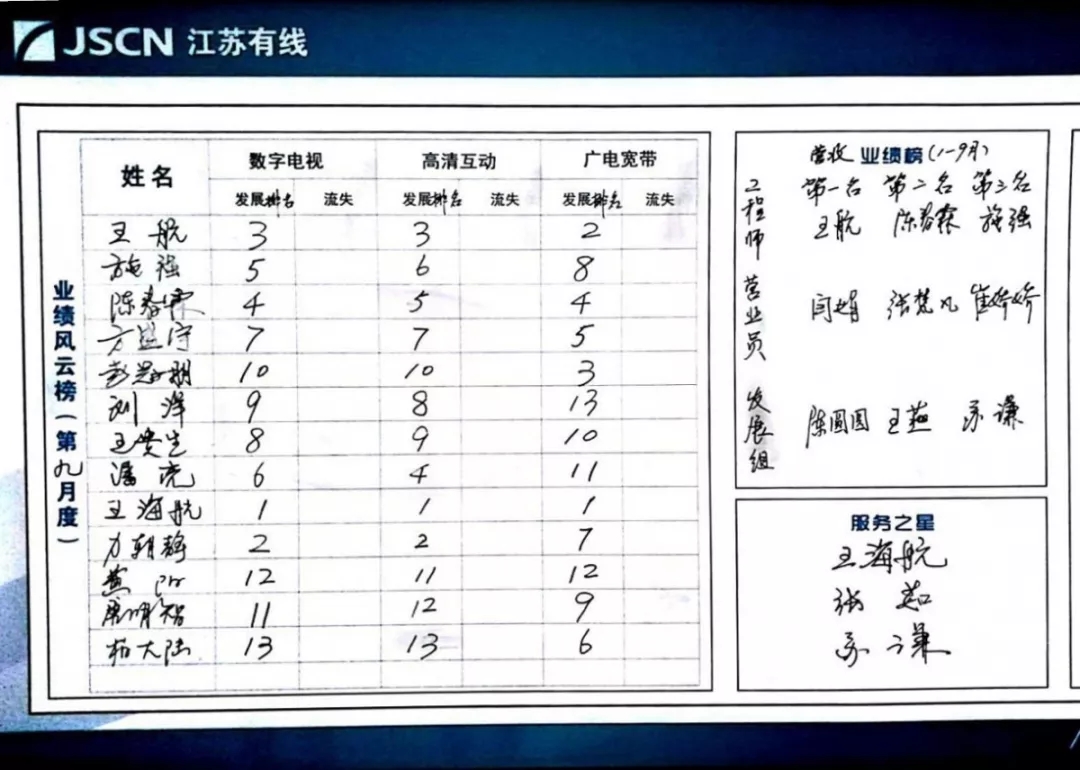 JSCN 江苏有线
业绩风云榜(第九月度)
姓名 数字电视 高清互动 广电宽带
发展排名 流失 发展排名 流失 发展排名 流失
王航 3 3 2
施强 5 6 8
陈春霖 4 5 4
方盛宇 7 7 5
10 10 3
刘泽 9 8 13
王安生 8 9 10
潘亮 6 4 11
王海航 1 1 1
力朝静 2 2 7
12 11 12
11 12 9
柏大陆 13 13 6
营收 业绩榜(1-9月)
第一名 第二名 第三名
工程师 王航 陈春霖 施强
营业员 闫娟 张梵凡 崔娇娇
发展组 陈圆圆 王燕 孙谦
服务之星
王海航
张茹
孙谦